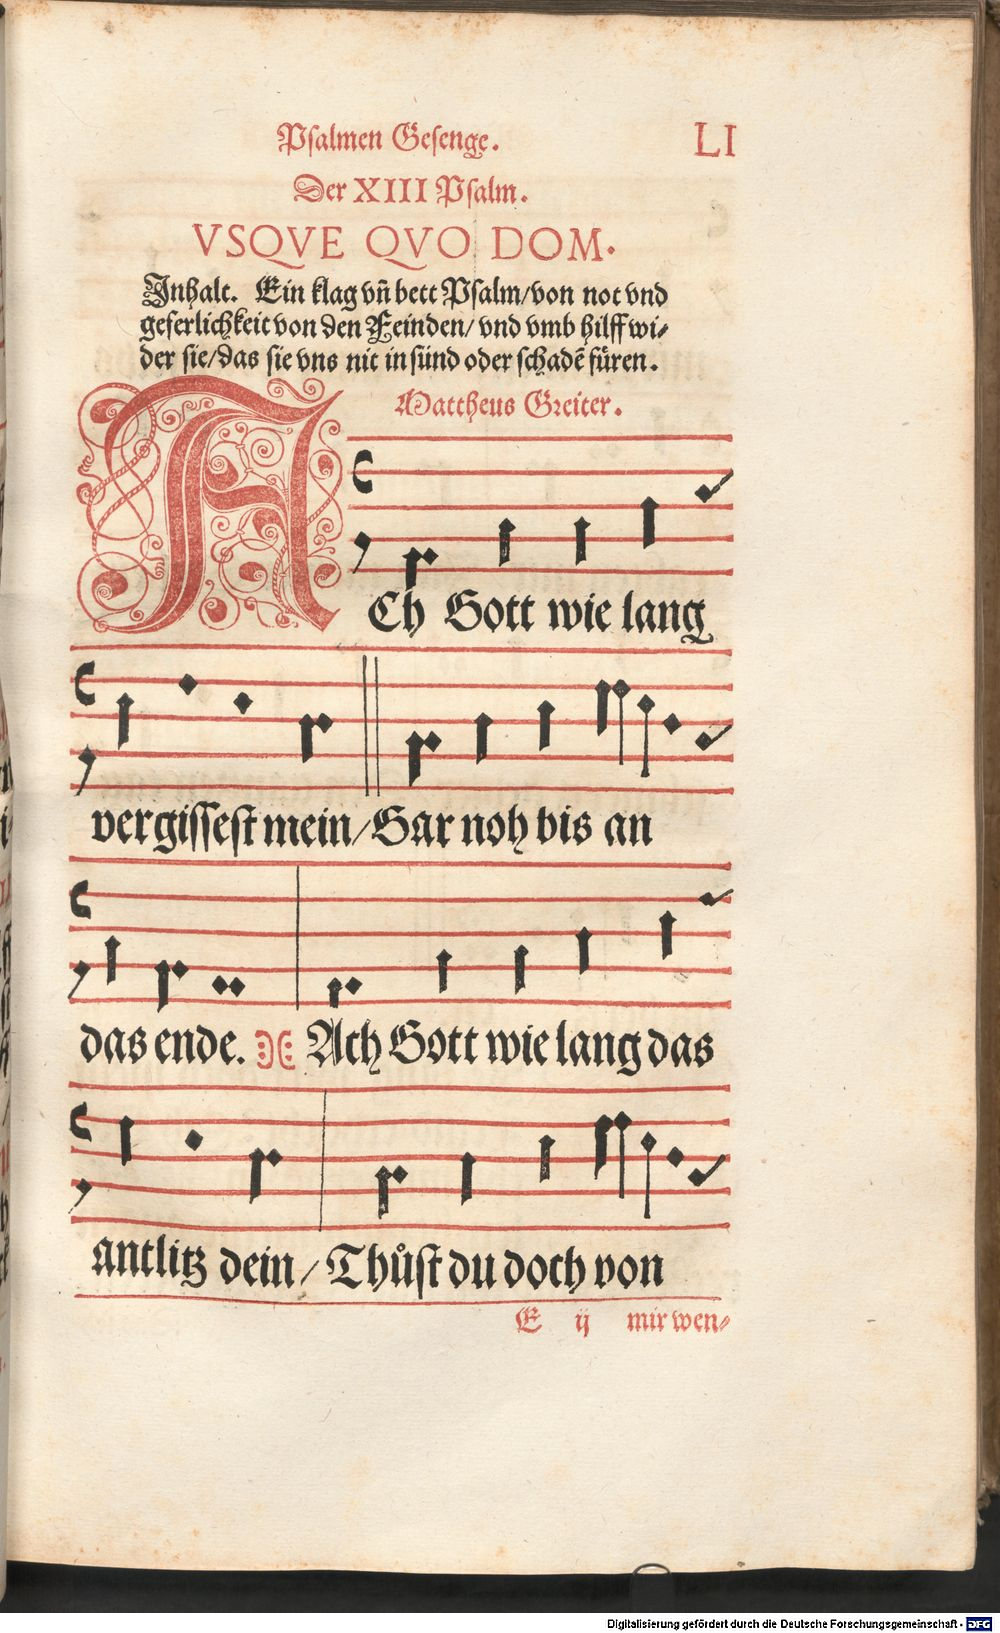 Psalmen Gesenge. LI
Der XIII Psalm.
VSQVE QVO DOM.
Inhalt. Ein klag vñ bett Psalm/von not vnd
geferlichkeit von den Feinden/ vnd vmb hilff wi⸗
der sie/das sie vns nit in sünd oder schadẽ füren.
Mattheus Greiter.
ACh Gott wie lang
vergissest mein/Gar noh bis an
das ende. Ach Gott wie lang das
antlitz dein/Thůst du doch von
E ij mir wen⸗
Digitalisierung gefördert durch die Deutsche Forschungsgemeinschaft - DFG